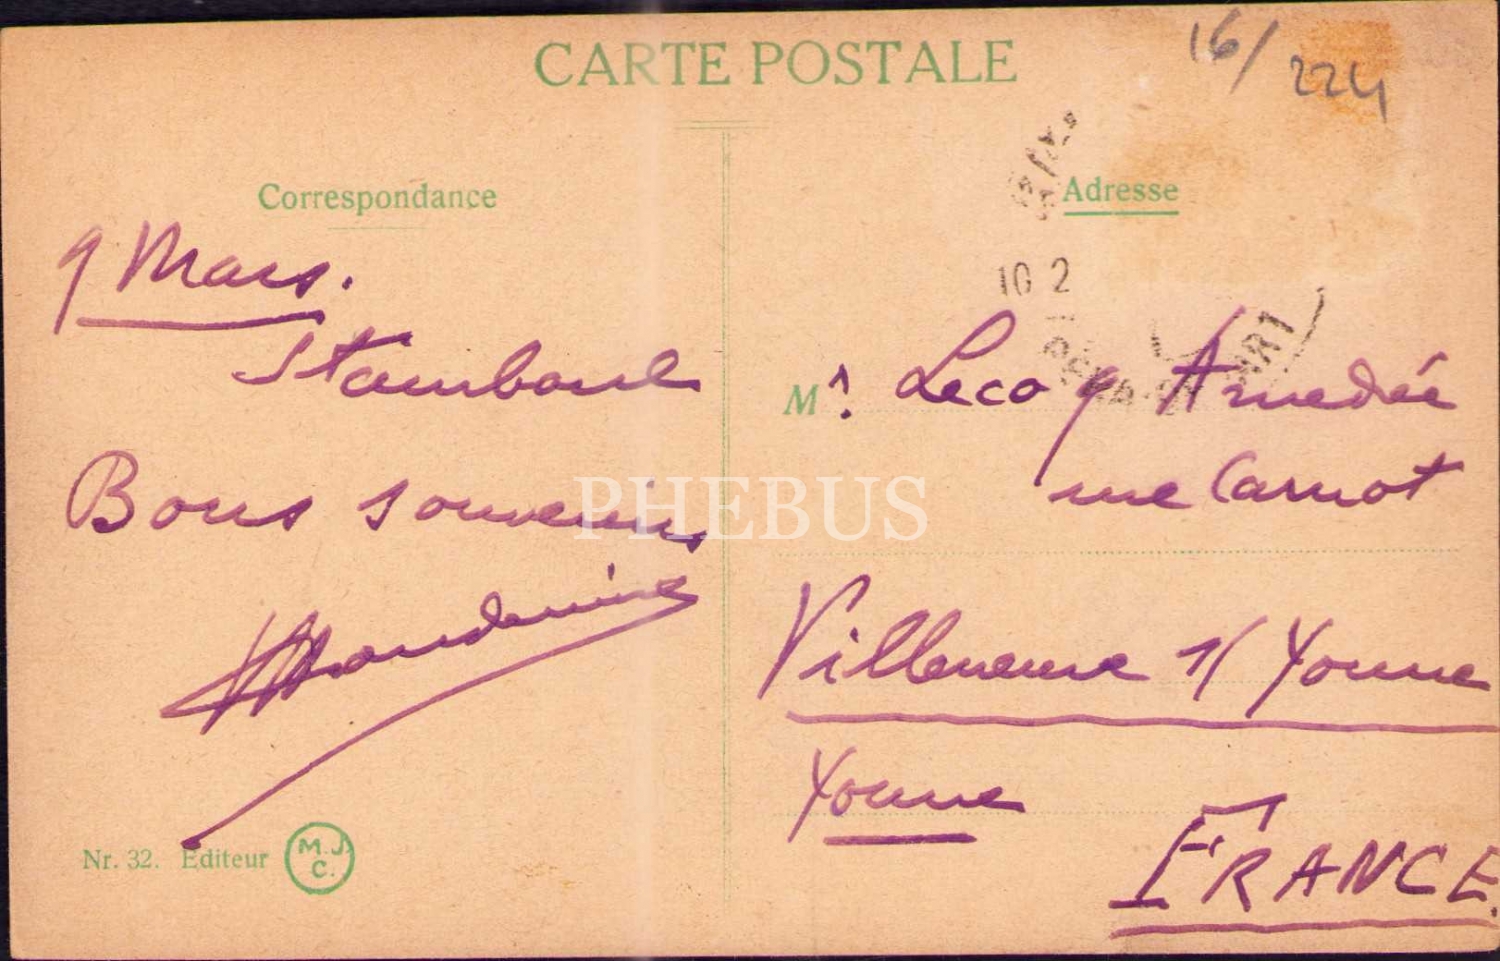 CARTE POSTALE
16/224
Correspondance
Adresse
9 Mars.
Stamboul
Bons souvenirs
Nr. 32. Editeur M.J.C.
10 2
Mr. Lecoq Amedée
rue Carnot
Villeneuve s/ Yonne
Yonne
FRANCE.
PHEBUS